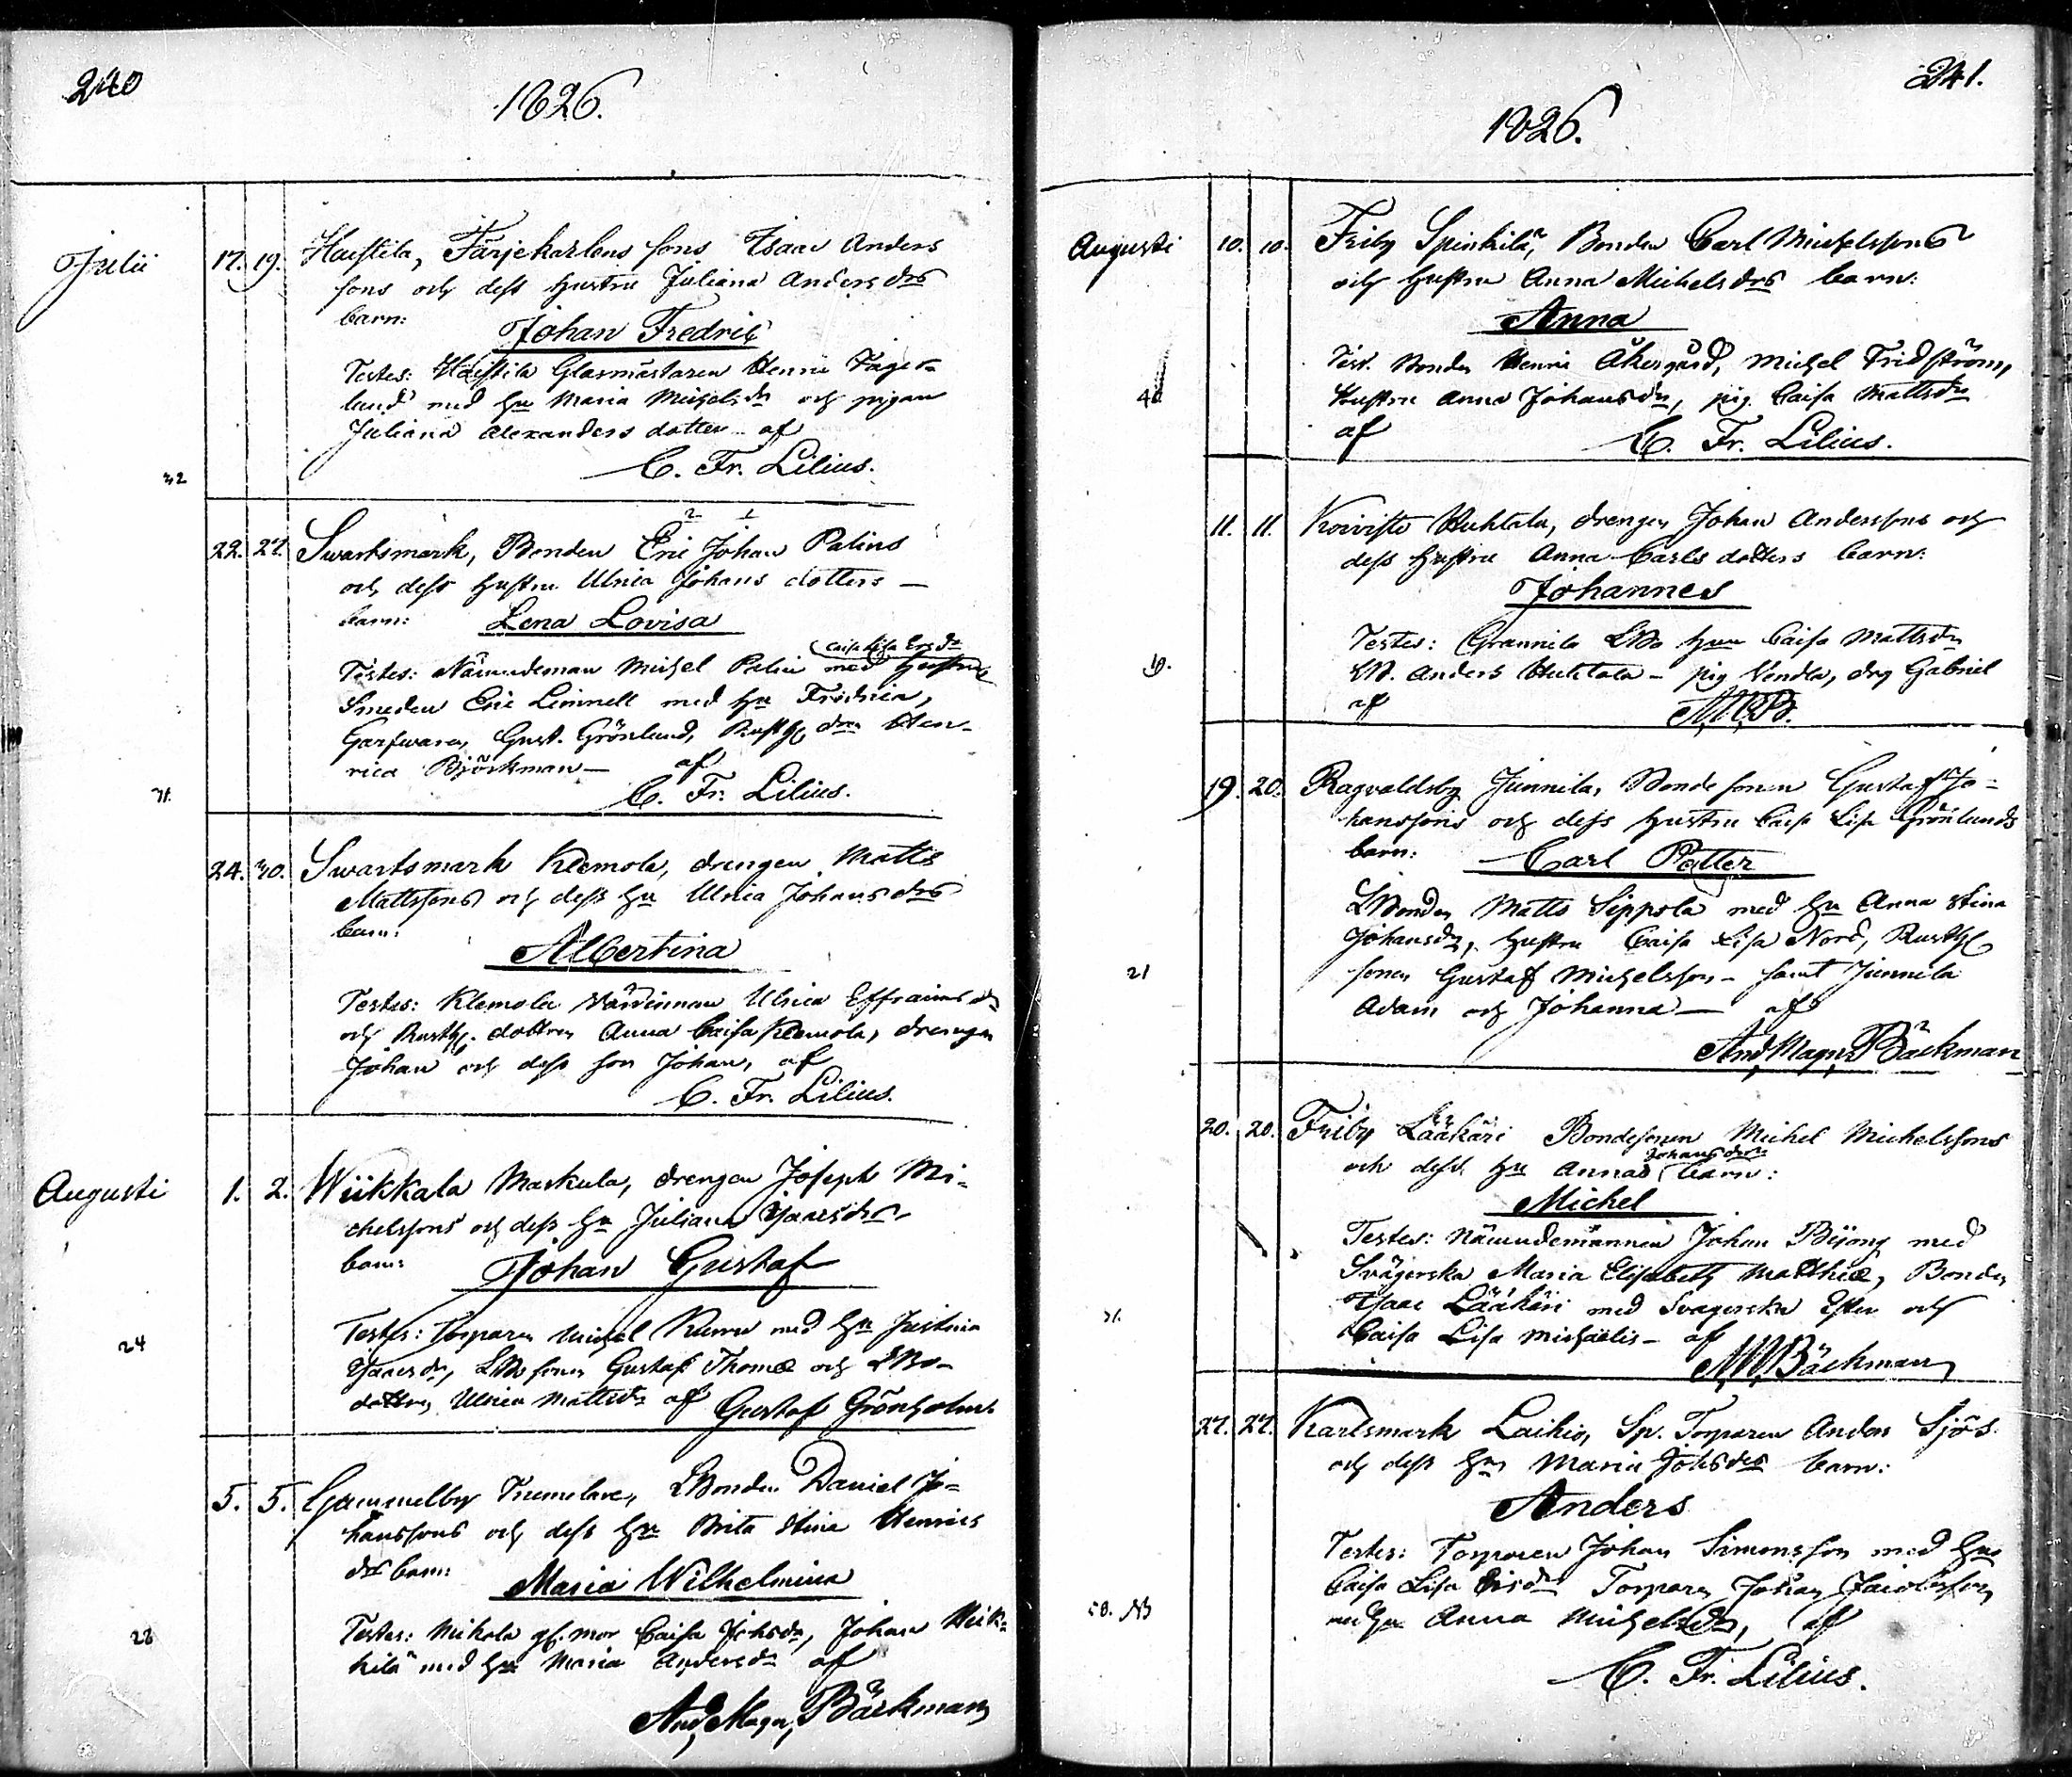 240
1826.
Julii 17. 19. Haistila, Färjekarlens sons Isaac Anders
sons och dess hustru Juliana Andersdrs
barn:
Johan Fredric
Testes: Haistila Glasmästaren Henric Fager-
lund med hu Maria Michelsdr och pigan
Juliana Alexanders dotter af
C. Fr. Lilius.
32
22. 27. Swartsmark, Bonden Eric Johan Palins
2 1
och dess hustru Ulrica Johans dotters —
barn: Lena Lovisa
Caisa Lisa Ersdr
Testes: Nämndeman Michel Palin med hustru
Smeden Eric Linnell med hu Fredrica,
Garfvaren Gust. Grönlund, Rusth dra Hen-
rica Björkman — af
C. Fr. Lilius.
31.
24. 30. Swartsmark Klemola, drengen Matts
Mattssons och dess hu Ulrica Johansdrs
barn:
Albertina
Testes: Klemola Värdinnan Ulrica Effraimsdr
och Rusth. dottren Anna Caisa Klemola, drengen
Johan och dess son Johan, af
C. Fr. Lilius.
Augusti 1. 2. Wiikkala Markula, drengen Joseph Mi-
chelssons och dess hu Juliana Isacsdrs
barn:
Johan Gustaf
Testes: Torparen Michel Kumu med hu Justina
24
Isacsdr, LBosonen Gustaf Thomæ och LBo-
dottren Ulrica Mattsdr af Gustaf Grönholm
5. 5. Gammelby LBonden Daniel Jo-
hanssons och dess hu Brita Stina Henrics
drs barn:
Maria Wilhelmina
Testes: Mikola gf. mor Caisa Johsdr, Johan Heik-
28
kilä med hu Maria Andersdr af
And. Magn. Bäckman
241.
1826.
Augusti 10. 10. Friby Spinkilä, Bonden Carl Michelssons
och hustru Anna Michelsdrs barn:
Anna
Test. Bonden Henric Åkergård, Michel Fridström,
Hustru Anna Johansdr, pig. Caisa Mattsdr
af
C. Fr. Lilius.
11. 11. Koivisto Huhtala, drengen Johan Anderssons och
dess hustru Anna Carls dotters barn:
Johannes
Testes: Grannila LBo hun Caisa Mattsdr
19.
LB. Anders Huhtala — pig Vendla, drg Gabriel
af
A.M.B.
19. 20. Ragvaldsby Junnila, Bondesonen Gustaf Jo-
hanssons och dess hustru Caisa Lisa Grönlunds
barn:
Carl Petter
LBonden Matts Sippola med hu Anna Stina
Johansdr, hustru Caisa Lisa Nord, Rusth
21
sonen Gustaf Michelsson — samt Junnila
Adam och Johanna — af
And. Magn. Bäckman
20. 20. Friby Lääkäri Bondesonen Michel Michelssons
Johansdrs
och dess hu Annas barn:
Michel
Testes: Nämndemannen Johan Bijong med
Svägerska Maria Elisabeth Matthiæ, Bonden
Isaac Lääkäri med Svagerska Ester och
31.
Caisa Lisa Michaelis — af
A.M. Bäckman
27. 27. Karlsmark Laihio, Sp. Torparen Anders Sjös
och dess hus Maria Johsdrs barn:
Anders
Testes: Torparen Johan Simonsson med hus
Caisa Lisa Ersdr Torparen Johan Jacobsson
med hu Anna Michelsdr, af
C. Fr. Lilius.